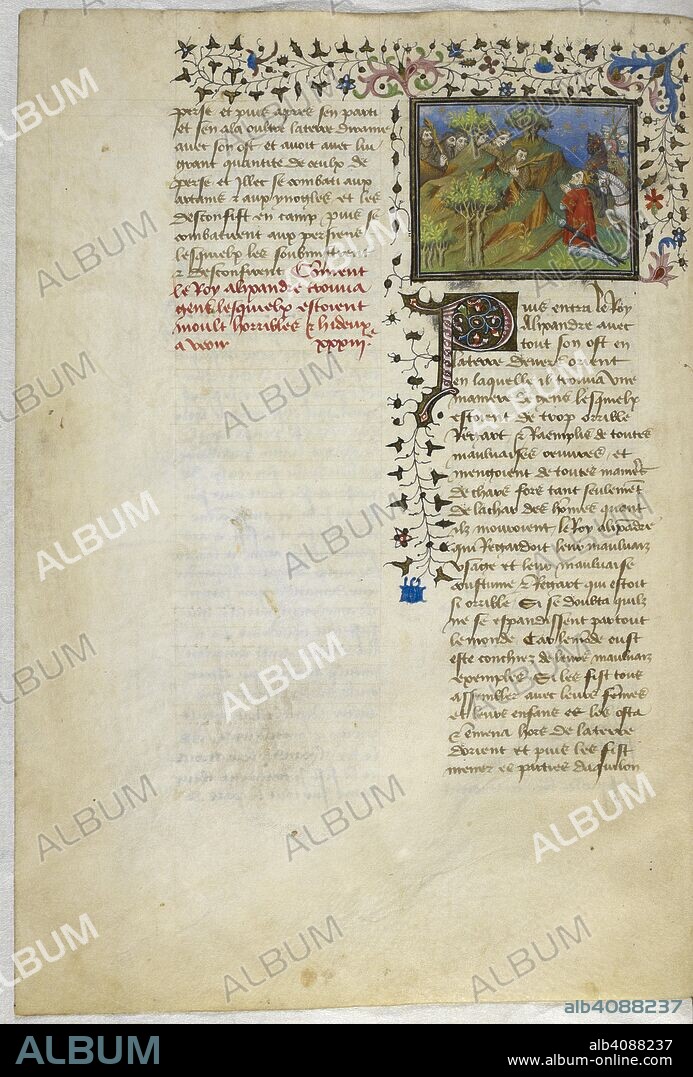 perse et puis apres sen parti
et sen ala oultre la terre dirame
avec son ost et avoit avec lui
grant quantite de ceulx de
perse et illec se combati aux
artanis & aux ynogles et les
desconfist en camp, puis se
combatirent aux persiens
lesquelx les soubmistrent
& desconfirent Coment
le Roy alixandre trouva
gens lesquelx estoient
moult horribles & hideux
a veoir xxxiii
Puis entra le Roy
Alixandre avec
tout son ost en
la terre devers orient
en laquelle il trouva une
maniere de gens lesquelx
estoient de trop orrible
Regart & Raemplis de toutes
mauluaises oeuvres, et
mengoient de toutes manies
de chars fors tant seulemet
de la char des homes quant
ilz mouroient le Roy alixadre
qui Regardoit leur mauluaix
usage et leur mauluaise
coustume & Regart qui estoit
si orrible. Si se doubta quilz
ne se espandissent partout
le monde Car le mode eust
este conchiez de leurs mauluaix
exemples. Si les fist tous
assembler avec leurs femes
et leurs enfans et les osta
& emena hors de la terre
dorient et puis les fist
mener es parties daquilon
ALBUM
alb4088237
ALBUM
alb4088237
www.album-online.com